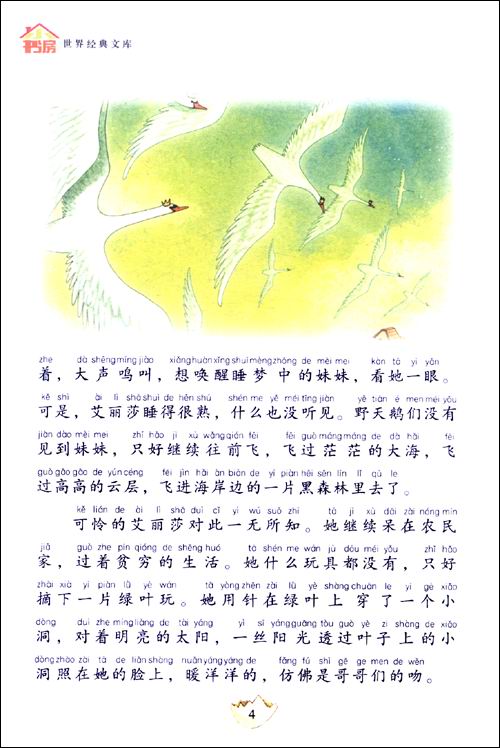 书房
世界经典文库
zhe dà shēng míng jiào xiǎng huàn xǐng shuì mèng zhōng de mèi mei kàn tā yì yǎn
着，大声鸣叫，想唤醒睡梦中的妹妹，看她一眼。
kě shì ài lì shā shuì de hěn shú shén me yě méi tīng jiàn yě tiān é men méi yǒu
可是，艾丽莎睡得很熟，什么也没听见。野天鹅们没有
jiàn dào mèi mei zhǐ hǎo jì xù wǎng qián fēi fēi guò máng máng de dà hǎi fēi
见到妹妹，只好继续往前飞，飞过茫茫的大海，飞
guò gāo gāo de yún céng fēi jìn hǎi àn biān de yí piàn hēi sēn lín lǐ qù le
过高高的云层，飞进海岸边的一片黑森林里去了。
kě lián de ài lì shā duì cǐ yì wú suǒ zhī tā jì xù dāi zài nóng mín
可怜的艾丽莎对此一无所知。她继续呆在农民
jiā guò zhe pín qióng de shēng huó tā shén me wán jù dōu méi yǒu zhǐ hǎo
家，过着贫穷的生活。她什么玩具都没有，只好
zhāi xià yí piàn lǜ yè wán tā yòng zhēn zài lǜ yè shàng chuān le yí gè xiǎo
摘下一片绿叶玩。她用针在绿叶上穿了一个小
dòng duì zhe míng liàng de tài yáng yì sī yáng guāng tòu guò yè zi shàng de xiǎo
洞，对着明亮的太阳，一丝阳光透过叶子上的小
dòng zhào zài tā de liǎn shàng nuǎn yáng yáng de fǎng fú shì gē ge men de wěn
洞照在她的脸上，暖洋洋的，仿佛是哥哥们的吻。
4